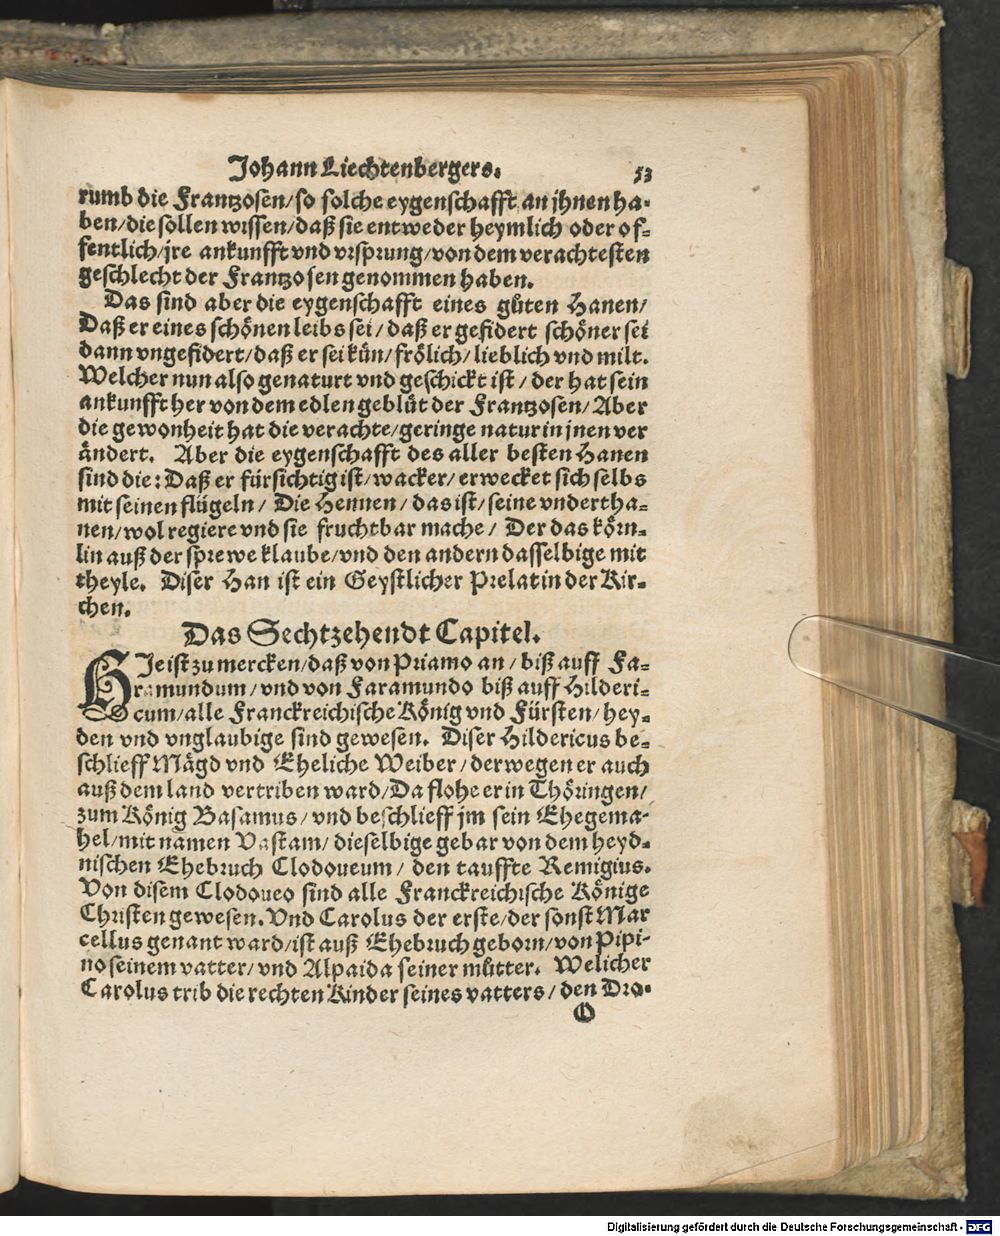 Johann Liechtenbergers. 53
rumb die Frantzosen/so solche eygenschafft an jhnen ha-
ben/die sollen wissen/daß sie entweder heymlich oder of-
fentlich/jre ankunfft vnd vrsprung/von dem verachtesten
geschlecht der Frantzosen genommen haben.
Das sind aber die eygenschafft eines gůten Hanen/
Daß er eines schönen leibs sei/daß er gefidert schöner sei
dann vngefidert/daß er sei kün/frölich/lieblich vnd milt.
Welcher nun also genaturt vnd geschickt ist/der hat sein
ankunfft her von dem edlen geblůt der Frantzosen/Aber
die gewonheit hat die verachte/geringe natur in jnen ver
ändert. Aber die eygenschafft des aller besten Hanen
sind die: Daß er fürsichtig ist/wacker/erwecket sich selbs
mit seinen flügeln/ Die Hennen/das ist/seine vndertha-
nen/wol regiere vnd sie fruchtbar mache/ Der das körn-
lin auß der sprewe klaube/vnd den andern dasselbige mit
theyle. Diser Han ist ein Geystlicher Prelat in der Kir-
chen.
Das Sechtzehendt Capitel.
HJe ist zu mercken/daß von Priamo an/biß auff Fa-
ramundum/vnd von Faramundo biß auff Hilderi-
cum/alle Franckreichische König vnd Fürsten/hey-
den vnd vnglaubige sind gewesen. Diser Hildericus be-
schlieff Mägd vnd Eheliche Weiber/derwegen er auch
auß dem land vertriben ward/Da flohe er in Thöringen/
zum König Basamus/vnd beschlieff jm sein Ehegema-
hel/mit namen Vastam/dieselbige gebar von dem heyd-
nischen Ehebruch Clodoueum/den tauffte Remigius.
Von disem Clodoueo sind alle Franckreichische Könige
Christen gewesen. Vnd Carolus der erste/der sonst Mar
cellus genant ward/ist auß Ehebruch geborn/von Pipi-
no seinem vatter/vnd Alpaida seiner můtter. Welicher
Carolus trib die rechten Kinder seines vatters/den Dro-
O
Digitalisierung gefördert durch die Deutsche Forschungsgemeinschaft - DFG